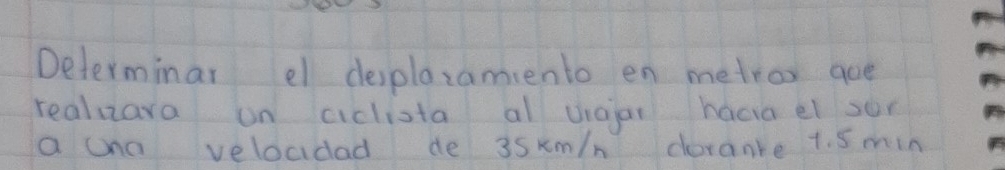 Determinar el desplazamiento en metros que
realizara un ciclista al viajar hacia el sur
a una velocidad de 35 km/h durante 1.5 min